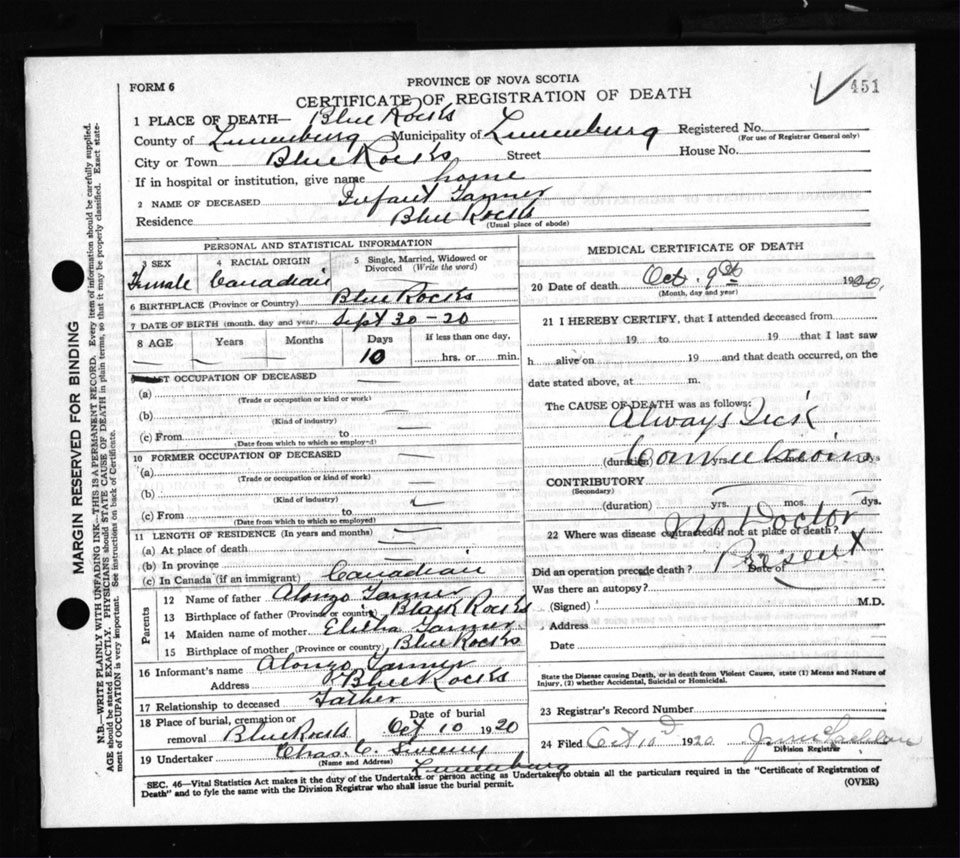 451
FORM 6
PROVINCE OF NOVA SCOTIA
CERTIFICATE OF REGISTRATION OF DEATH
1 PLACE OF DEATH— Blue Rocks
County of Lunenburg Municipality of Lunenburg Registered No.
(For use of Registrar General only)
City or Town Blue Rocks Street House No.
If in hospital or institution, give name home
2 NAME OF DECEASED Infant Tanner
Residence Blue Rocks
(Usual place of abode)
PERSONAL AND STATISTICAL INFORMATION
3 SEX 4 RACIAL ORIGIN 5 Single, Married, Widowed or Divorced (Write the word)
Female Canadian
6 BIRTHPLACE (Province or Country) Blue Rocks
7 DATE OF BIRTH (month, day and year) Sept 30-20
8 AGE Years Months Days If less than one day,
10 hrs. or min.
OCCUPATION OF DECEASED
(a)
(Trade or occupation or kind or work)
(b)
(Kind of industry)
(c) From to
(Date from which to which so employed)
10 FORMER OCCUPATION OF DECEASED
(a)
(Trade or occupation or kind of work)
(b)
(Kind of industry)
(c) From to
(Date from which to which so employed)
11 LENGTH OF RESIDENCE (In years and months)
(a) At place of death
(b) In province
(c) In Canada (if an immigrant) Canadian
Parents
12 Name of father Alonzo Tanner
13 Birthplace of father (Province or country) Black Rocks
14 Maiden name of mother Tanner
15 Birthplace of mother (Province or country) Blue Rocks
16 Informant's name Alonzo Tanner
Address Blue Rocks
17 Relationship to deceased Father
18 Place of burial, cremation or removal Blue Rocks Date of burial Oct 10 1920
19 Undertaker Chas. C. Sweeny
(Name and Address) Lunenburg
MEDICAL CERTIFICATE OF DEATH
20 Date of death Oct 9th 1920
(Month, day and year)
21 I HEREBY CERTIFY, that I attended deceased from
19 to 19 that I last saw
h alive on 19 and that death occurred, on the
date stated above, at m.
The CAUSE OF DEATH was as follows:
Always Sick
Convulsions
(duration) yrs. mos. dys
CONTRIBUTORY
(Secondary)
(duration) yrs. mos. dys.
22 Where was disease contracted if not at place of death?
No Doctor
Present
Did an operation precede death? Date of
Was there an autopsy?
(Signed) M.D.
Address
Date
State the Disease causing Death, or in death from Violent Causes, state (1) Means and Nature of
Injury, (2) whether Accidental, Suicidal or Homicidal.
23 Registrar's Record Number
24 Filed Oct 10 1920
Division Registrar
SEC. 46—Vital Statistics Act makes it the duty of the Undertaker or person acting as Undertaker to obtain all the particulars required in the "Certificate of Registration of
Death" and to fyle the same with the Division Registrar who shall issue the burial permit.
(OVER)
MARGIN RESERVED FOR BINDING
N.B.—WRITE PLAINLY WITH UNFADING INK—THIS IS A PERMANENT RECORD. Every item of information should be carefully supplied.
AGE should be stated EXACTLY. PHYSICIANS should STATE CAUSE OF DEATH in plain terms, so that it may be properly classified. Exact statement of OCCUPATION is very important. See instructions on back of Certificate.